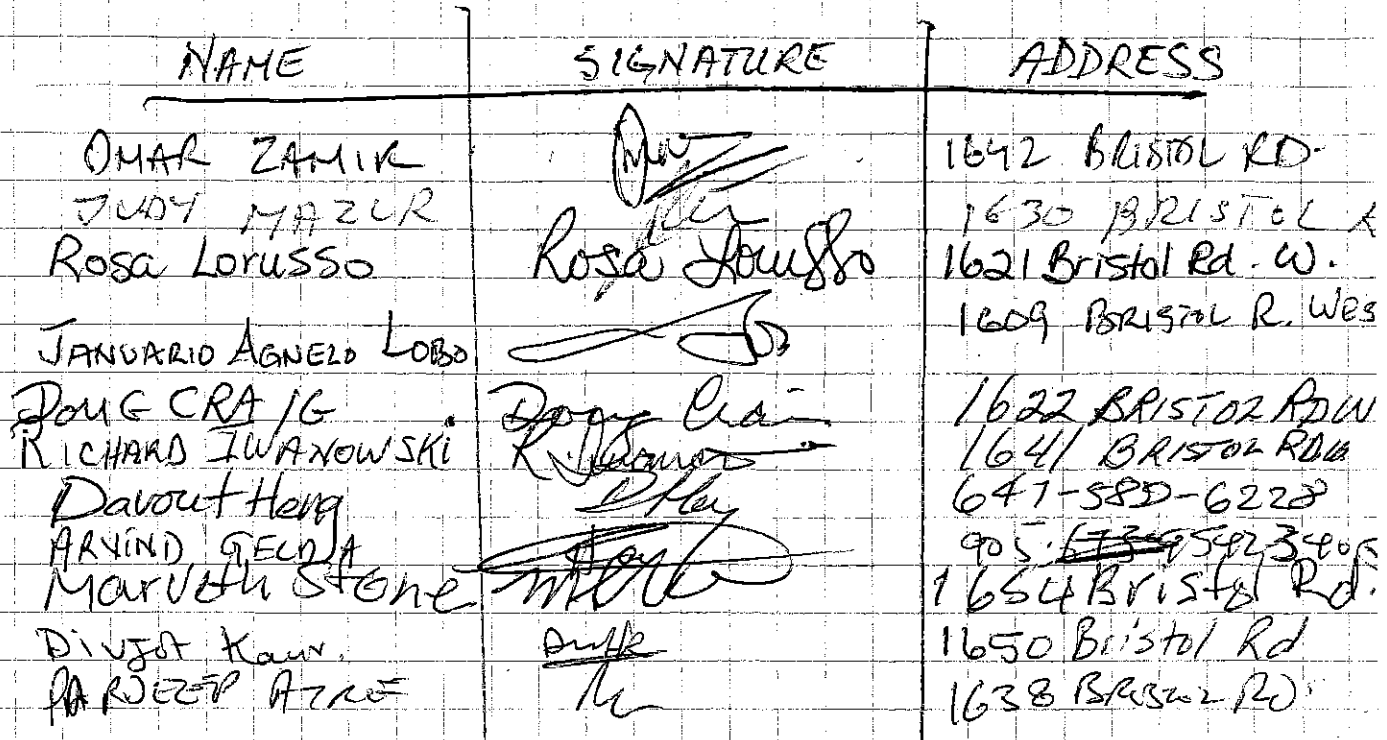 NAME SIGNATURE ADDRESS
OMAR ZAMIR 1642 BRISTOL RD.
JUDY MAZUR 1630 BRISTOL
Rosa Lorusso Rosa Lorusso 1621 Bristol Rd. W.
JANUARIO AGNELO LOBO 1609 BRISTOL R. WES
DOUG CRAIG Doug Craig 1622 BRISTOL RD W
RICHARD IWANOWSKI R. 1641 BRISTOL RD W
Davout Heng 647-580-6228
ARVIND GELDA 905. 542 3405
Marveth Stone 1654 Bristol Rd.
Divjot Kaur. 1650 Bristol Rd
PARDEEP 1638 BRISTOL RD.